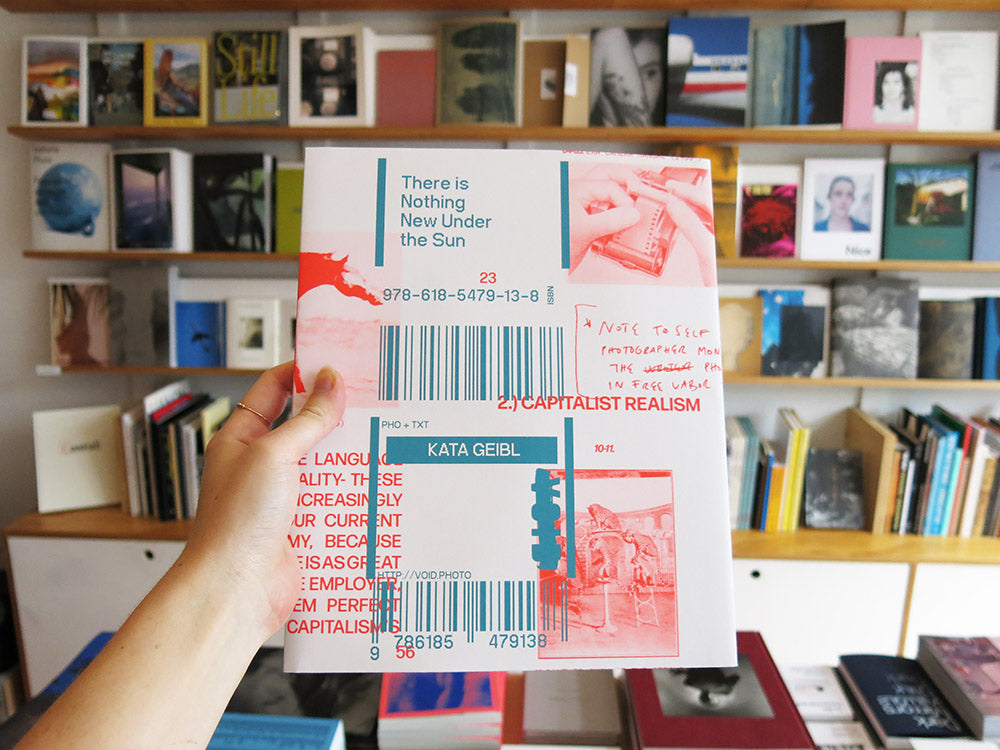 Still
Life
Nice
There is
Nothing
New Under
the Sun
23
978-618-5479-13-8
ISBN
* NOTE TO SELF
PHOTOGRAPHER MON
THE WRITER PHO
IN FREE LABOR
2.) CAPITALIST REALISM
PHO + TXT
KATA GEIBL
10-11.
E LANGUAGE
ALITY- THESE
NCREASINGLY
UR CURRENT
MY, BECAUSE
E IS AS GREAT
E EMPLOYER,
EM PERFECT
CAPITALISM'S
HTTP://VOID.PHOTO
9 786185 479138
56